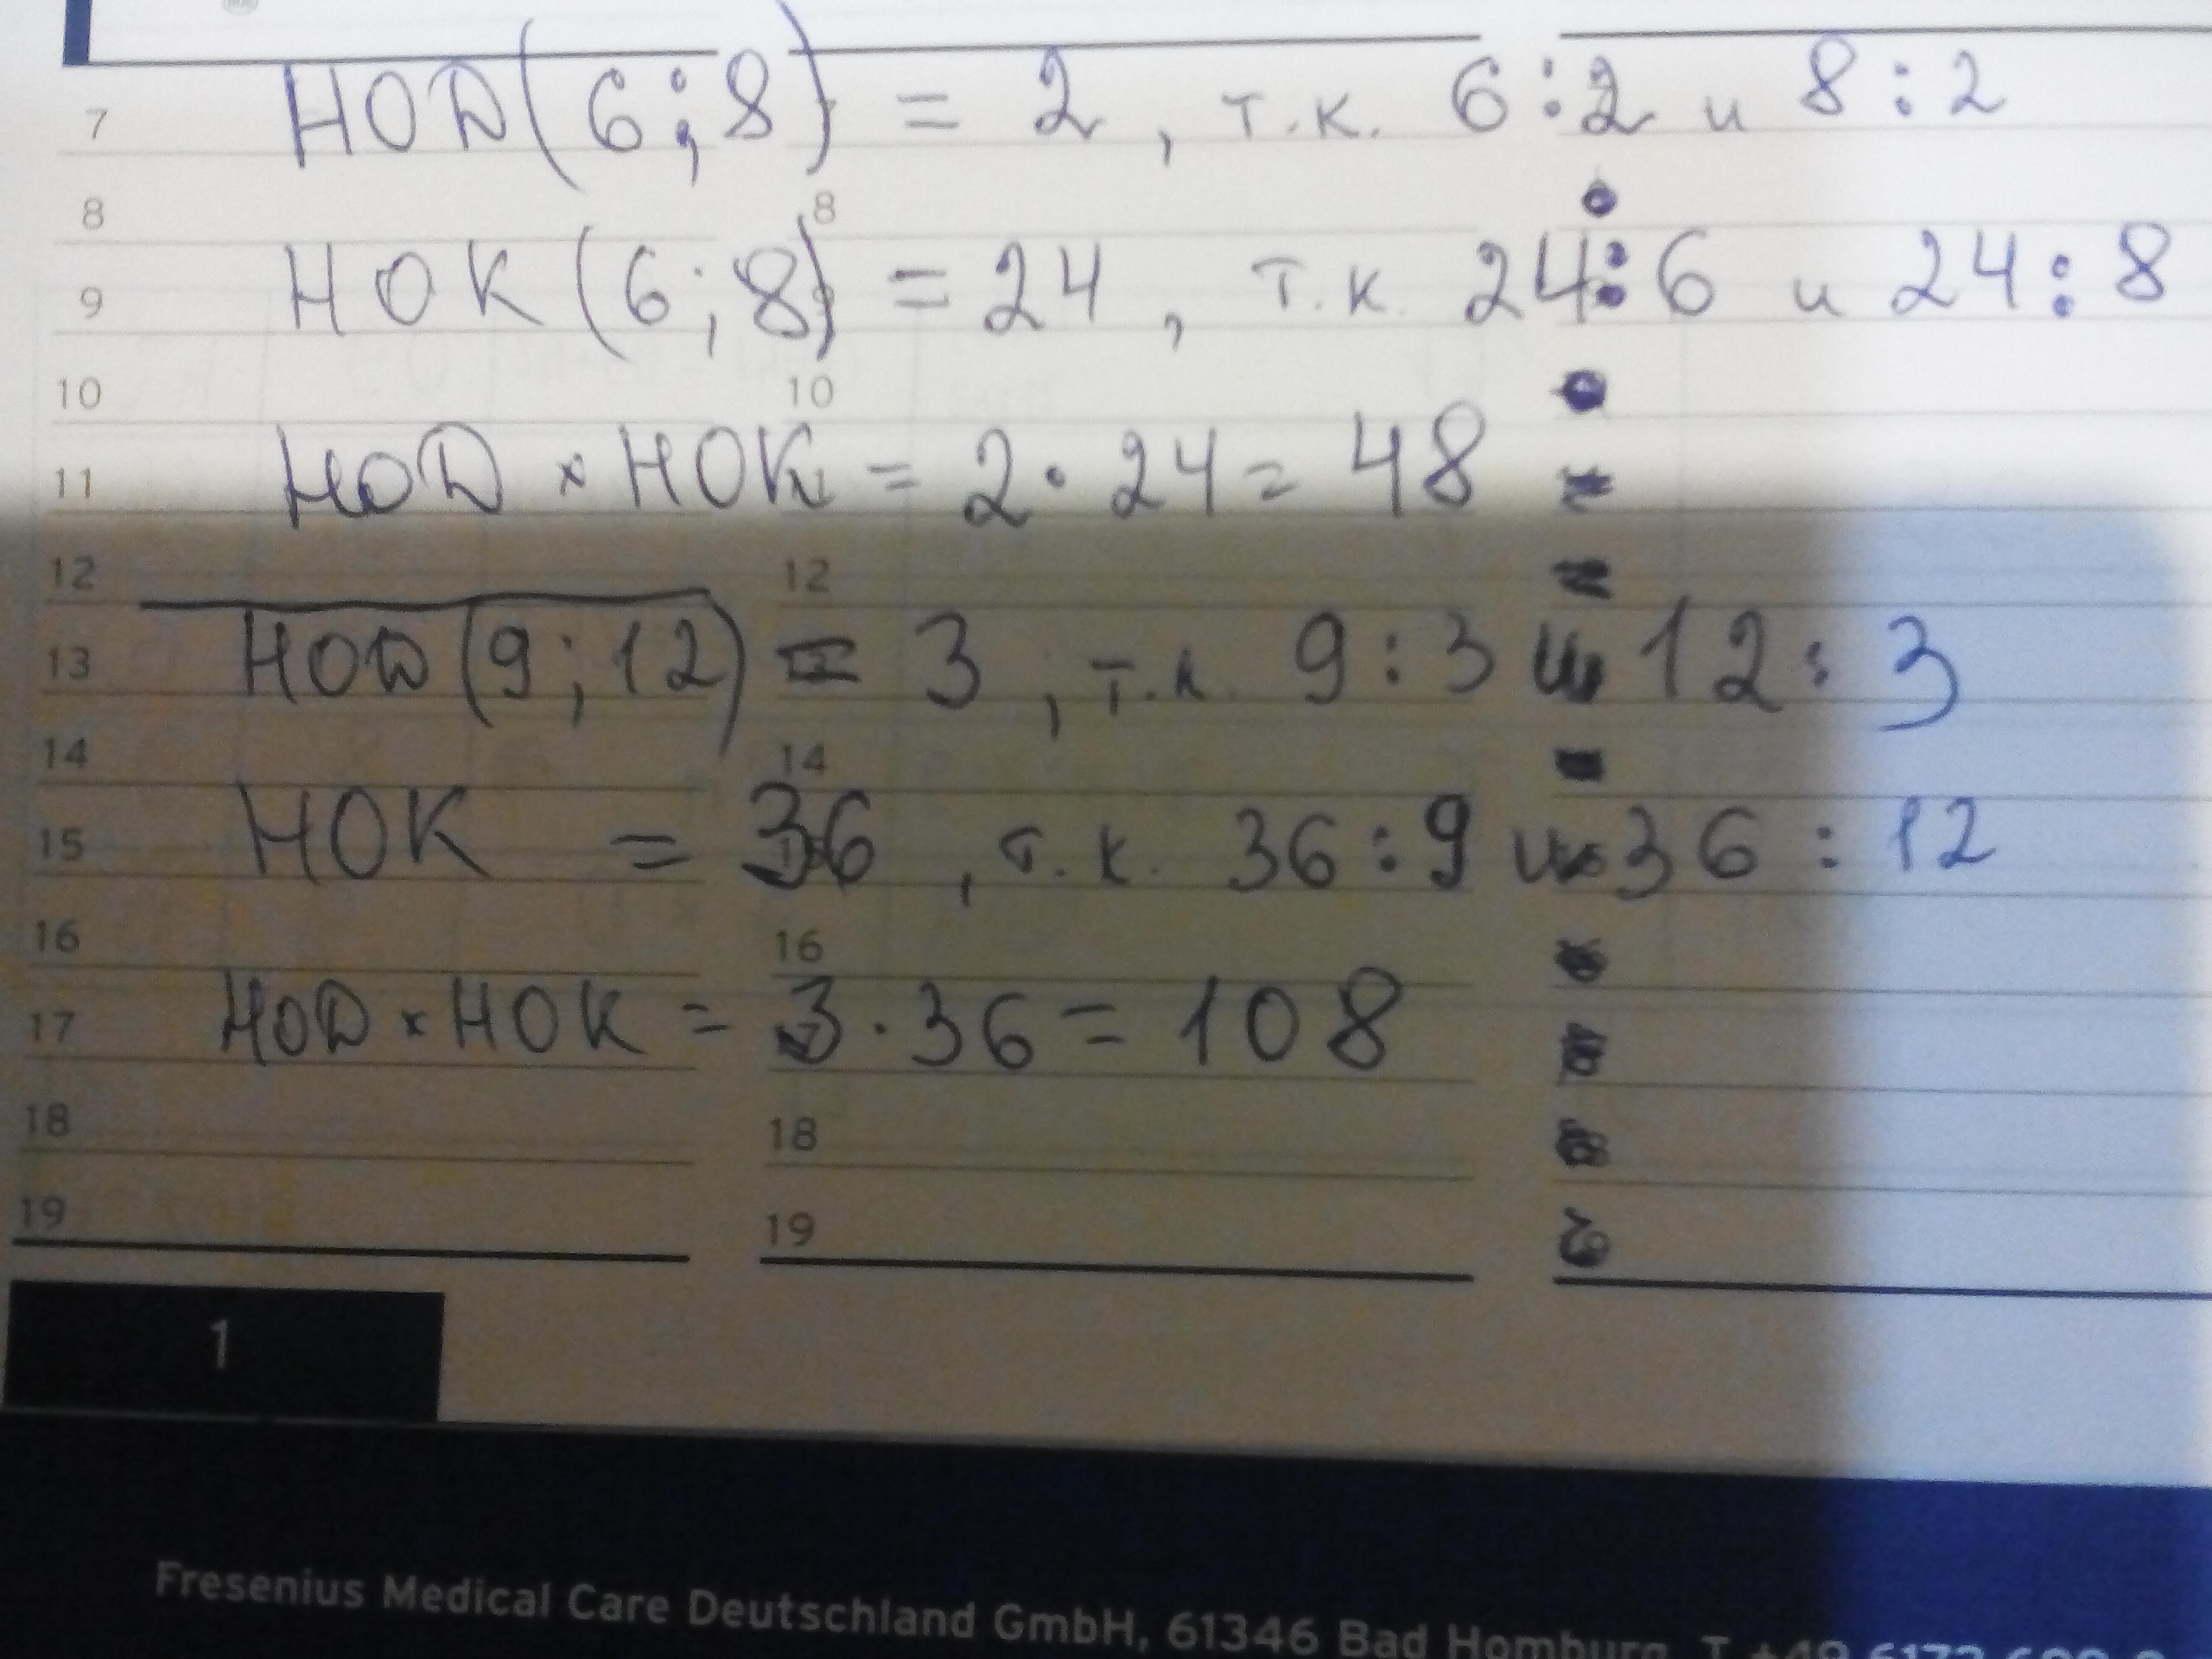 7 НОD(6;8) = 2, т.к. 6:2 и 8:2
8 8
9 НОК(6;8) = 24, т.к. 24:6 и 24:8
10 10
11 НОD × НОК = 2·24 = 48
12 12
13 НОD(9;12) = 3, т.к. 9:3 и 12:3
14 14
15 НОК = 36, т.к. 36:9 и 36:12
16 16
17 НОD × НОК = 3·36 = 108
18 18
19 19
1
Fresenius Medical Care Deutschland GmbH, 61346 Bad Homburg, T +49 6172